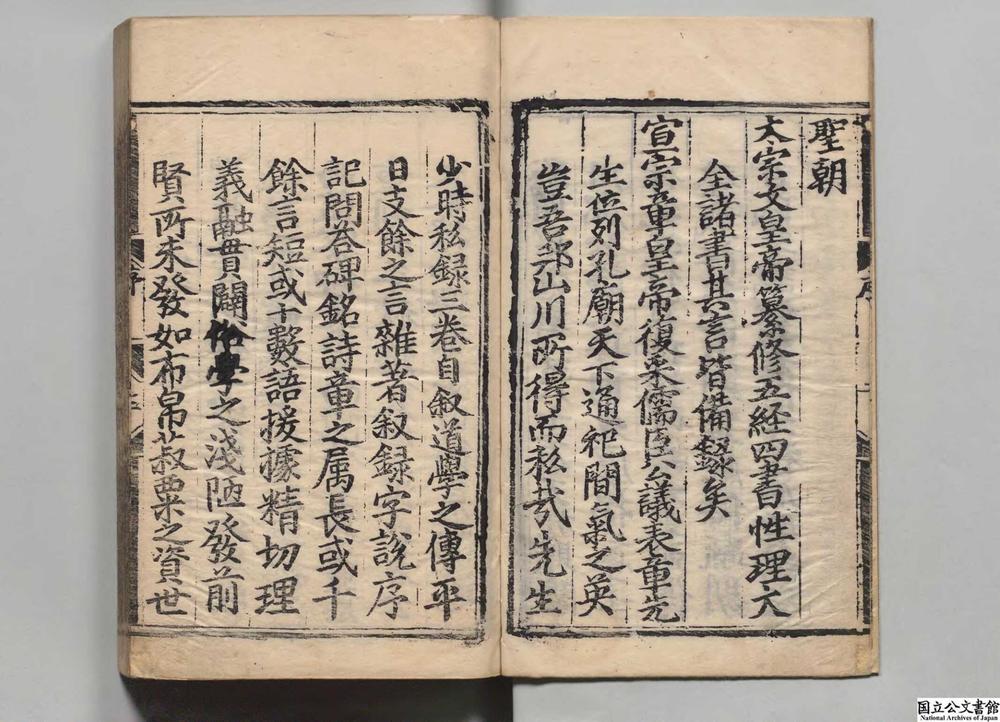 聖朝
太宗文皇帝纂修五経四書性理大
全諸書其言皆備録矣
宣宗章皇帝復采儒臣公議表章先
生位列孔廟天下通祀間氣之英
豈吾邦山川所得而私㢤先生
少時私録三卷自叙道學之傳平
日支餘之言雜著叙録字說序
記問荅碑銘詩章之属長或千
餘言短或十數語援據精切理
義融貫闢俗學之淺陋發前
賢所未發如布帛菽粟之資世
序
国立公文書館
National Archives of Japan